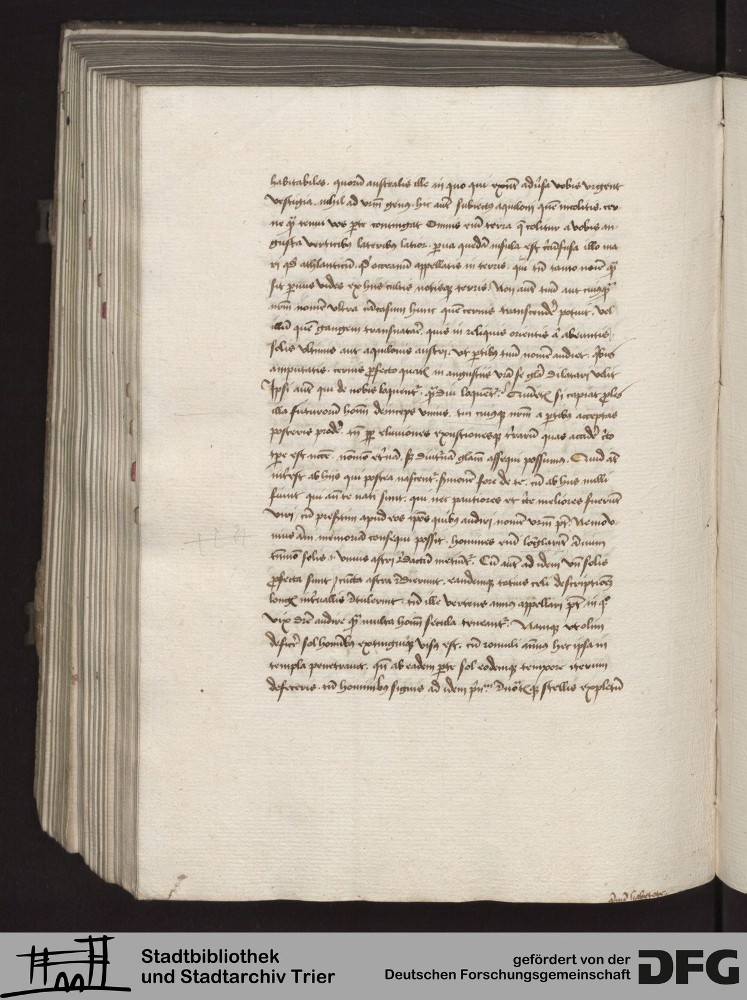 habitabiles . quorū australis ille in quo qui insistūt adūsa vobis urgent
vestigia . nihil ad vrm̄ genus . hic autē subiectus aquiloni quē incolitis . cer
ne qͣ tenui vos pte contingat Omnis enī terra q̄ colitur a vobis an
gusta verticibus lateribus latior . parua quedā insula est circūfusa illo ma
ri qd̄ athlanticū . qd̄ occeanū appellatis in terris . qui tn̄ tanto noīe qͣ
sit paruus vides ex his cultis notisque terris Non aut tuū aut cuiusquā
nrm̄ nomen vltra caucasum hunc quē cernis transcendē potuit . vel
illū quē gangem transnatare . quis in reliquis orientis aut abeuntis
solis vltimis aut aquilonis austri . ut ptibus tuū nomen audiet . Quibus
amputatis . cernis pfecto quātis in angustiis vrā se glā dilatari velit
Ipsi autē qui de nobis loquunt . qͣ diu loquētur .
illa futurorū homī deinceps vnius . cuiusque nrm̄ a patribus acceptas
posteris prodē . tn̄ ppter eluuiones exustionesque terrarū quas accidē
tpe est necesse . nō modo eternā . sed diuturnā glam assequi possumus . Quid
interest ab his qui postea nascent . sermonē fore de te . cū ab his nulli
fuerit qui ante nati sunt . qui nec pautiores et certe meliores fuerūt
viri . cū presertim apud eos ipsos quibus audiri nomen vrm̄ pt . Nemo v
nius anni memoriā consequi possit . homines enī
tmmō solis . i . vnius astri reditū metiunt . Cū autē ad idem vn̄ semel
pfecta sunt cuncta astra redierint . eandemque totius celi descriptionē
longis interuallis retulerint . tū ille vertens annus appellari pt in quo
vix dicere audeo qͣ multa homī secula teneant . Namque ut olim
deficere sol hominibus extinguique visus est . cū romuli animus hec ipsa in
templa penetrauit . qn̄ ab eadem parte sol eodemque tempore iterum
defecerit . tū hominibus signis ad idem prin stellis expletū
Stadtbibliothek
und Stadtarchiv Trier
gefördert von der
Deutschen Forschungsgemeinschaft
DFG